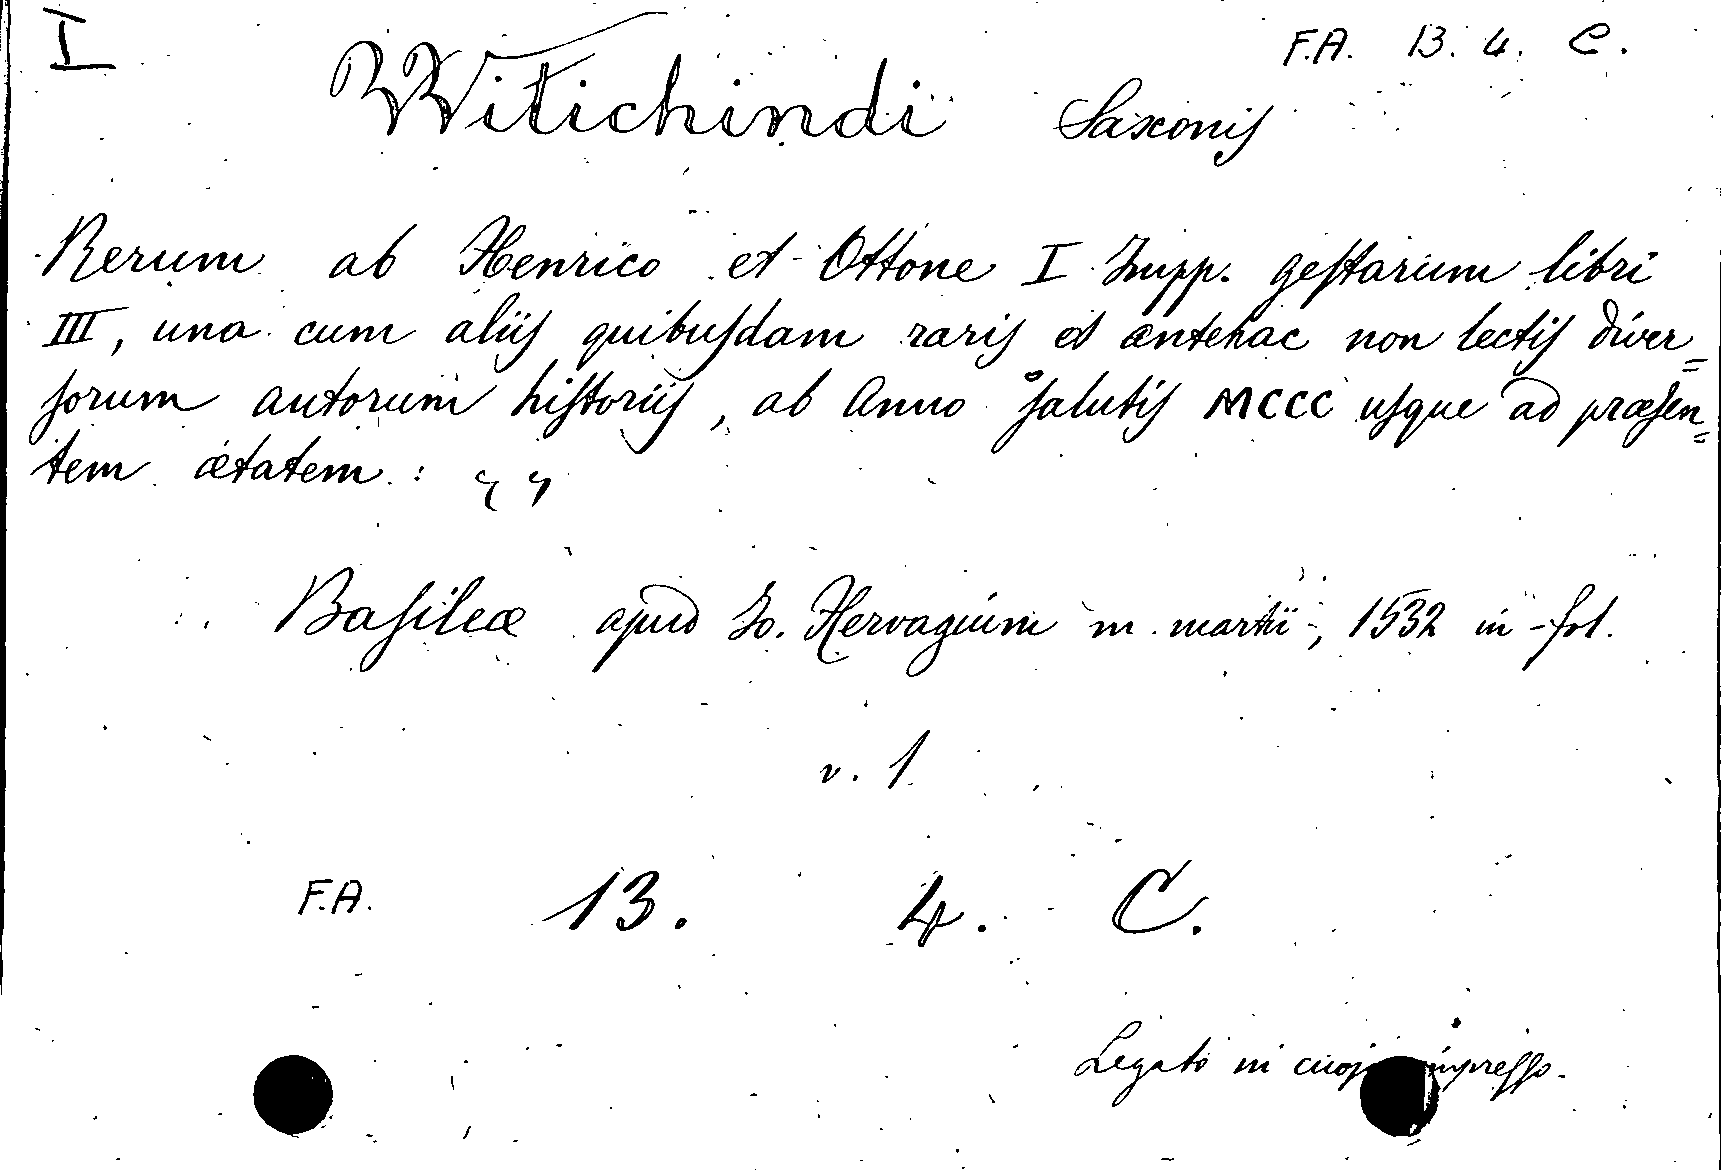 I
F.A. 13. 4. C.
Witichindi Saxonis
Rerum ab Henrico et Ottone I Impp. gestarum libri
III, una cum aliis quibusdam raris et antehac non lectis diver=
sorum autorum historiis, ab Anno salutis MCCC usque ad præsen=
tem ætatem :
Basileæ apud Io. Hervagium m. martii, 1532 in-fol.
v. 1
F.A. 13. 4. C.
Legato in cuojo impresso.